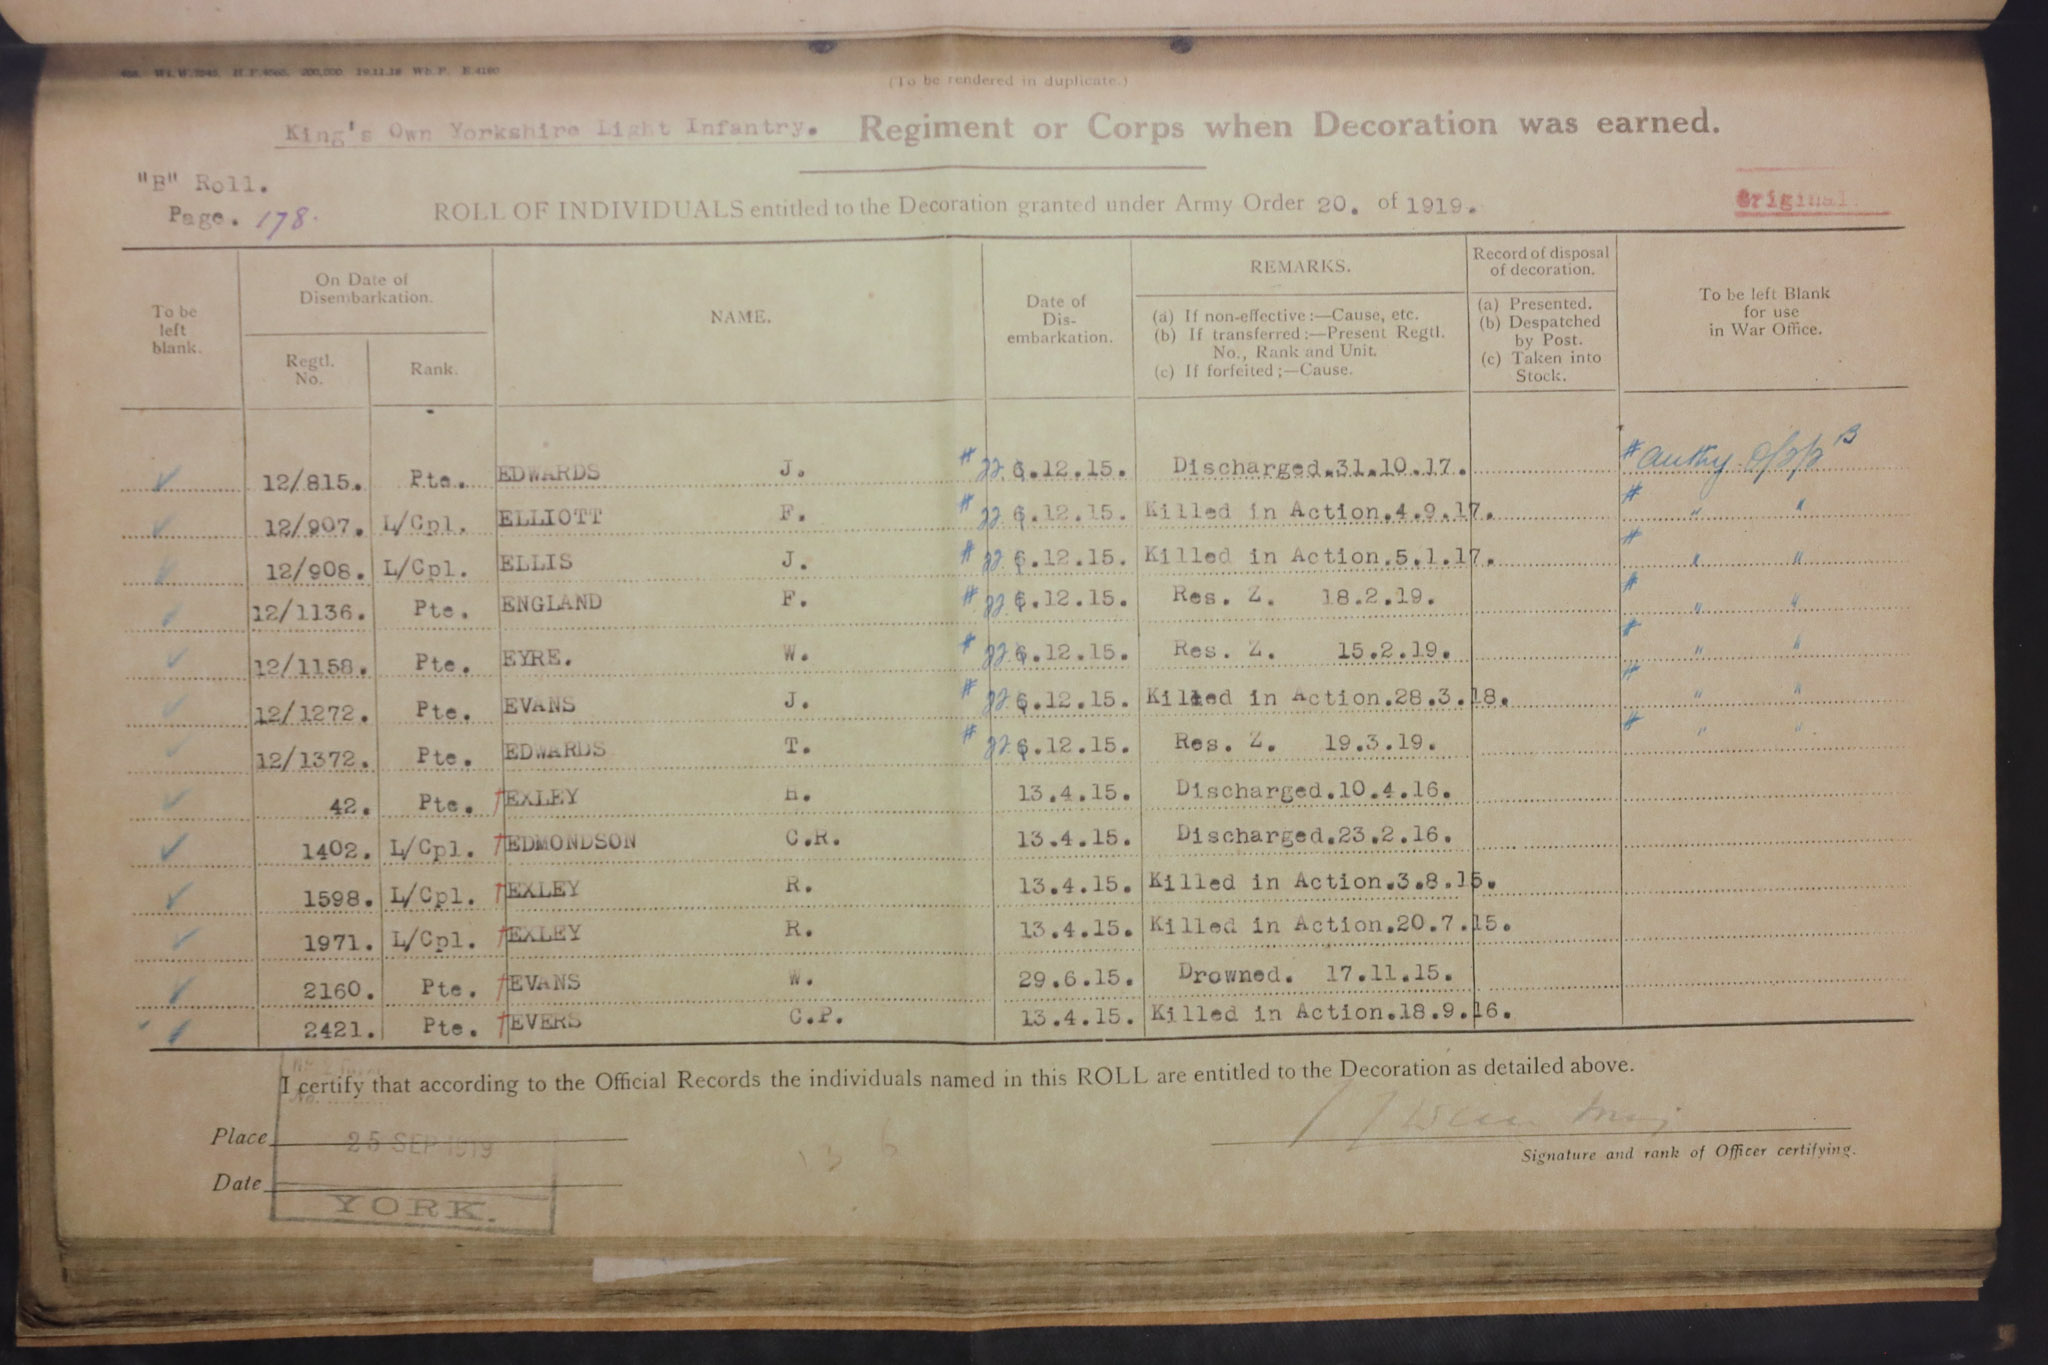 (To be rendered in duplicate.)
King's Own Yorkshire Light Infantry. Regiment or Corps when Decoration was earned.
"B" Roll.
Page. 178.
ROLL OF INDIVIDUALS entitled to the Decoration granted under Army Order 20. of 1919.
Original.
To be left blank.
On Date of Disembarkation.
Regtl. No.
Rank.
NAME.
Date of Dis-embarkation.
REMARKS.
(a) If non-effective:—Cause, etc.
(b) If transferred:—Present Regtl. No., Rank and Unit.
(c) If forfeited;—Cause.
Record of disposal of decoration.
(a) Presented.
(b) Despatched by Post.
(c) Taken into Stock.
To be left Blank for use in War Office.
12/815. Pte. EDWARDS J. # 22 6.12.15. Discharged.31.10.17. # authy
12/907. L/Cpl. ELLIOTT F. # 22 6.12.15. Killed in Action.4.9.17. # " "
12/908. L/Cpl. ELLIS J. # 22 6.12.15. Killed in Action.5.1.17. # " "
12/1136. Pte. ENGLAND F. # 22 6.12.15. Res. Z. 18.2.19. # " "
12/1158. Pte. EYRE. W. # 22 6.12.15. Res. Z. 15.2.19. # " "
12/1272. Pte. EVANS J. # 22 6.12.15. Killed in Action.28.3.18. # " "
12/1372. Pte. EDWARDS T. # 22 6.12.15. Res. Z. 19.3.19. # " "
42. Pte. †EXLEY H. 13.4.15. Discharged.10.4.16.
1402. L/Cpl. †EDMONDSON C.R. 13.4.15. Discharged.23.2.16.
1598. L/Cpl. †EXLEY R. 13.4.15. Killed in Action.3.8.15.
1971. L/Cpl. †EXLEY R. 13.4.15. Killed in Action.20.7.15.
2160. Pte. †EVANS W. 29.6.15. Drowned. 17.11.15.
2421. Pte. †EVERS C.P. 13.4.15. Killed in Action.18.9.16.
I certify that according to the Official Records the individuals named in this ROLL are entitled to the Decoration as detailed above.
Place
25 SEP 1919
Signature and rank of Officer certifying.
Date
YORK.